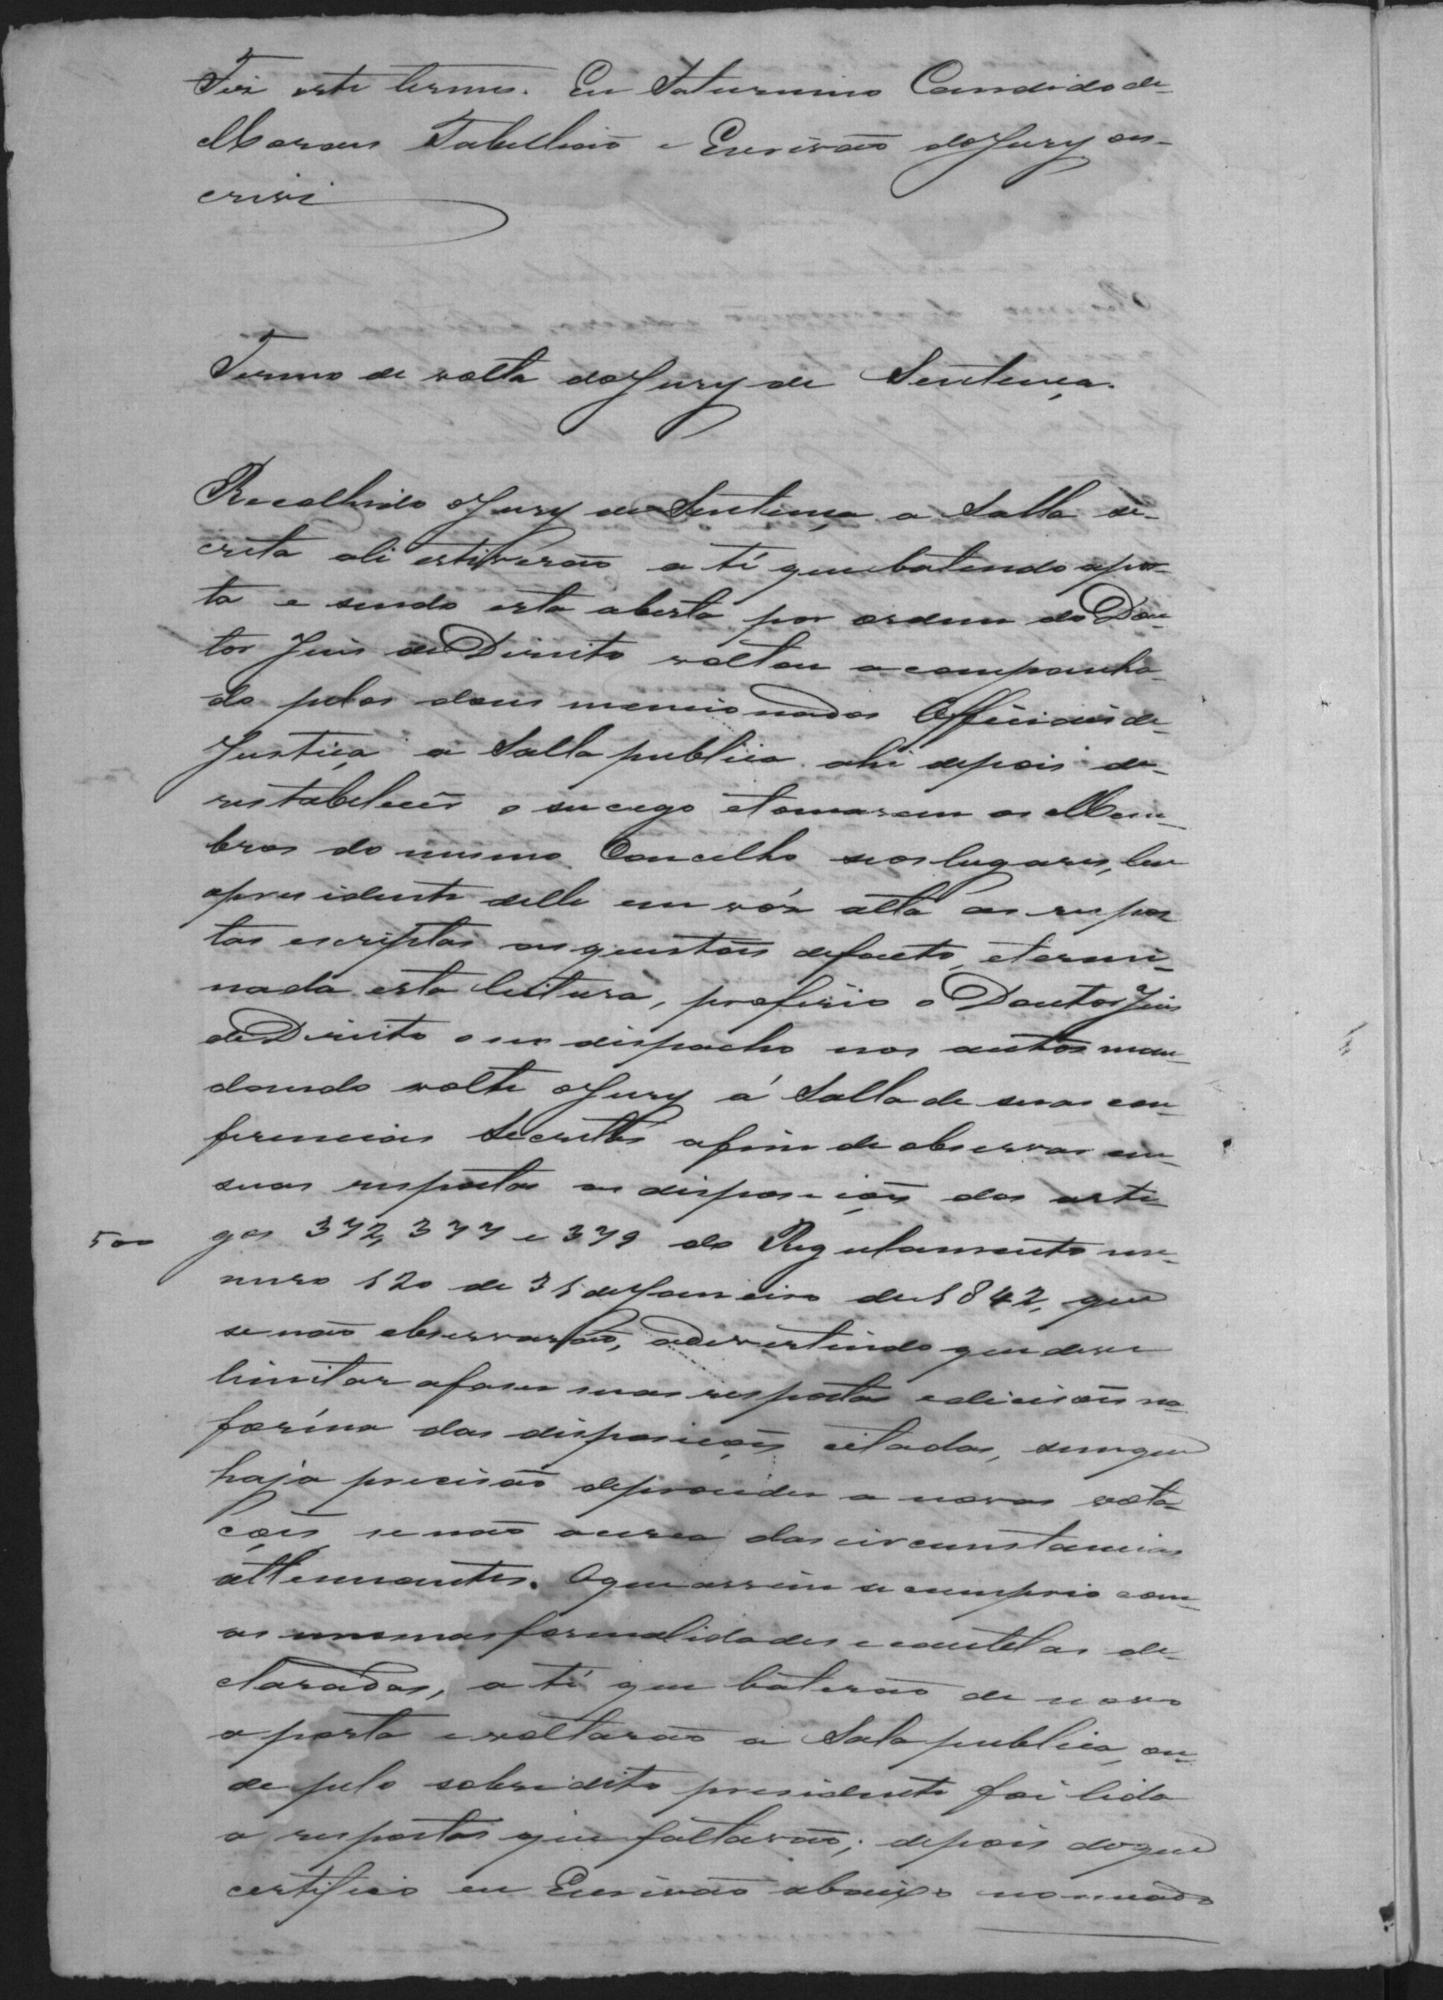 Fiz este termo. Eu Saturnino Candido de
Moraes Tabellião e Escrivão do Jury es-
crivi
Termo de volta do Jury de Sentença.
Recolhido o Jury de Sentença a Salla se-
creta ali estiverão a té que batendo a por-
ta e sendo esta aberta por ordem do Dou-
tor Juis de Direito voltou acompanha-
do pelos dous mencionados Officiaes de
Justiça a Salla publica ahi depois de
restabelecer o sucego e tomarem os Mem-
bros do mesmo Concelho seos lugares, leu
o presidente delle em vóz alta as respos
tas escriptas as questões de facto, e termi-
nada esta leitura, proferio o Doutor Juis
de Direito o seo dispacho nos autos man-
dando volte o Jury á Salla de suas con-
ferencias Secretas afim de observar em
suas respostas as disposições dos arti-
500 gos 372, 377 e 379 do Regulamento nu-
mero 120 de 31 de Janeiro de 1842, que
se não observarão, advertindo que deve
limitar a faser suas respostas e decisões na
forma das disposições citadas, sem que
haja precisão de proceder a novas vota-
ções se não acerca das circunstancias
attenuantes. O que assim se cumprio com
as mesmas formalidades e cautelas de-
claradas, a té que baterão de novo
a porta e voltarão a Sala publica, on-
de pelo sobredito presidente foi lida
a respostas que faltavão; depois do que
certifico eu Escrivão abaixo nomeado